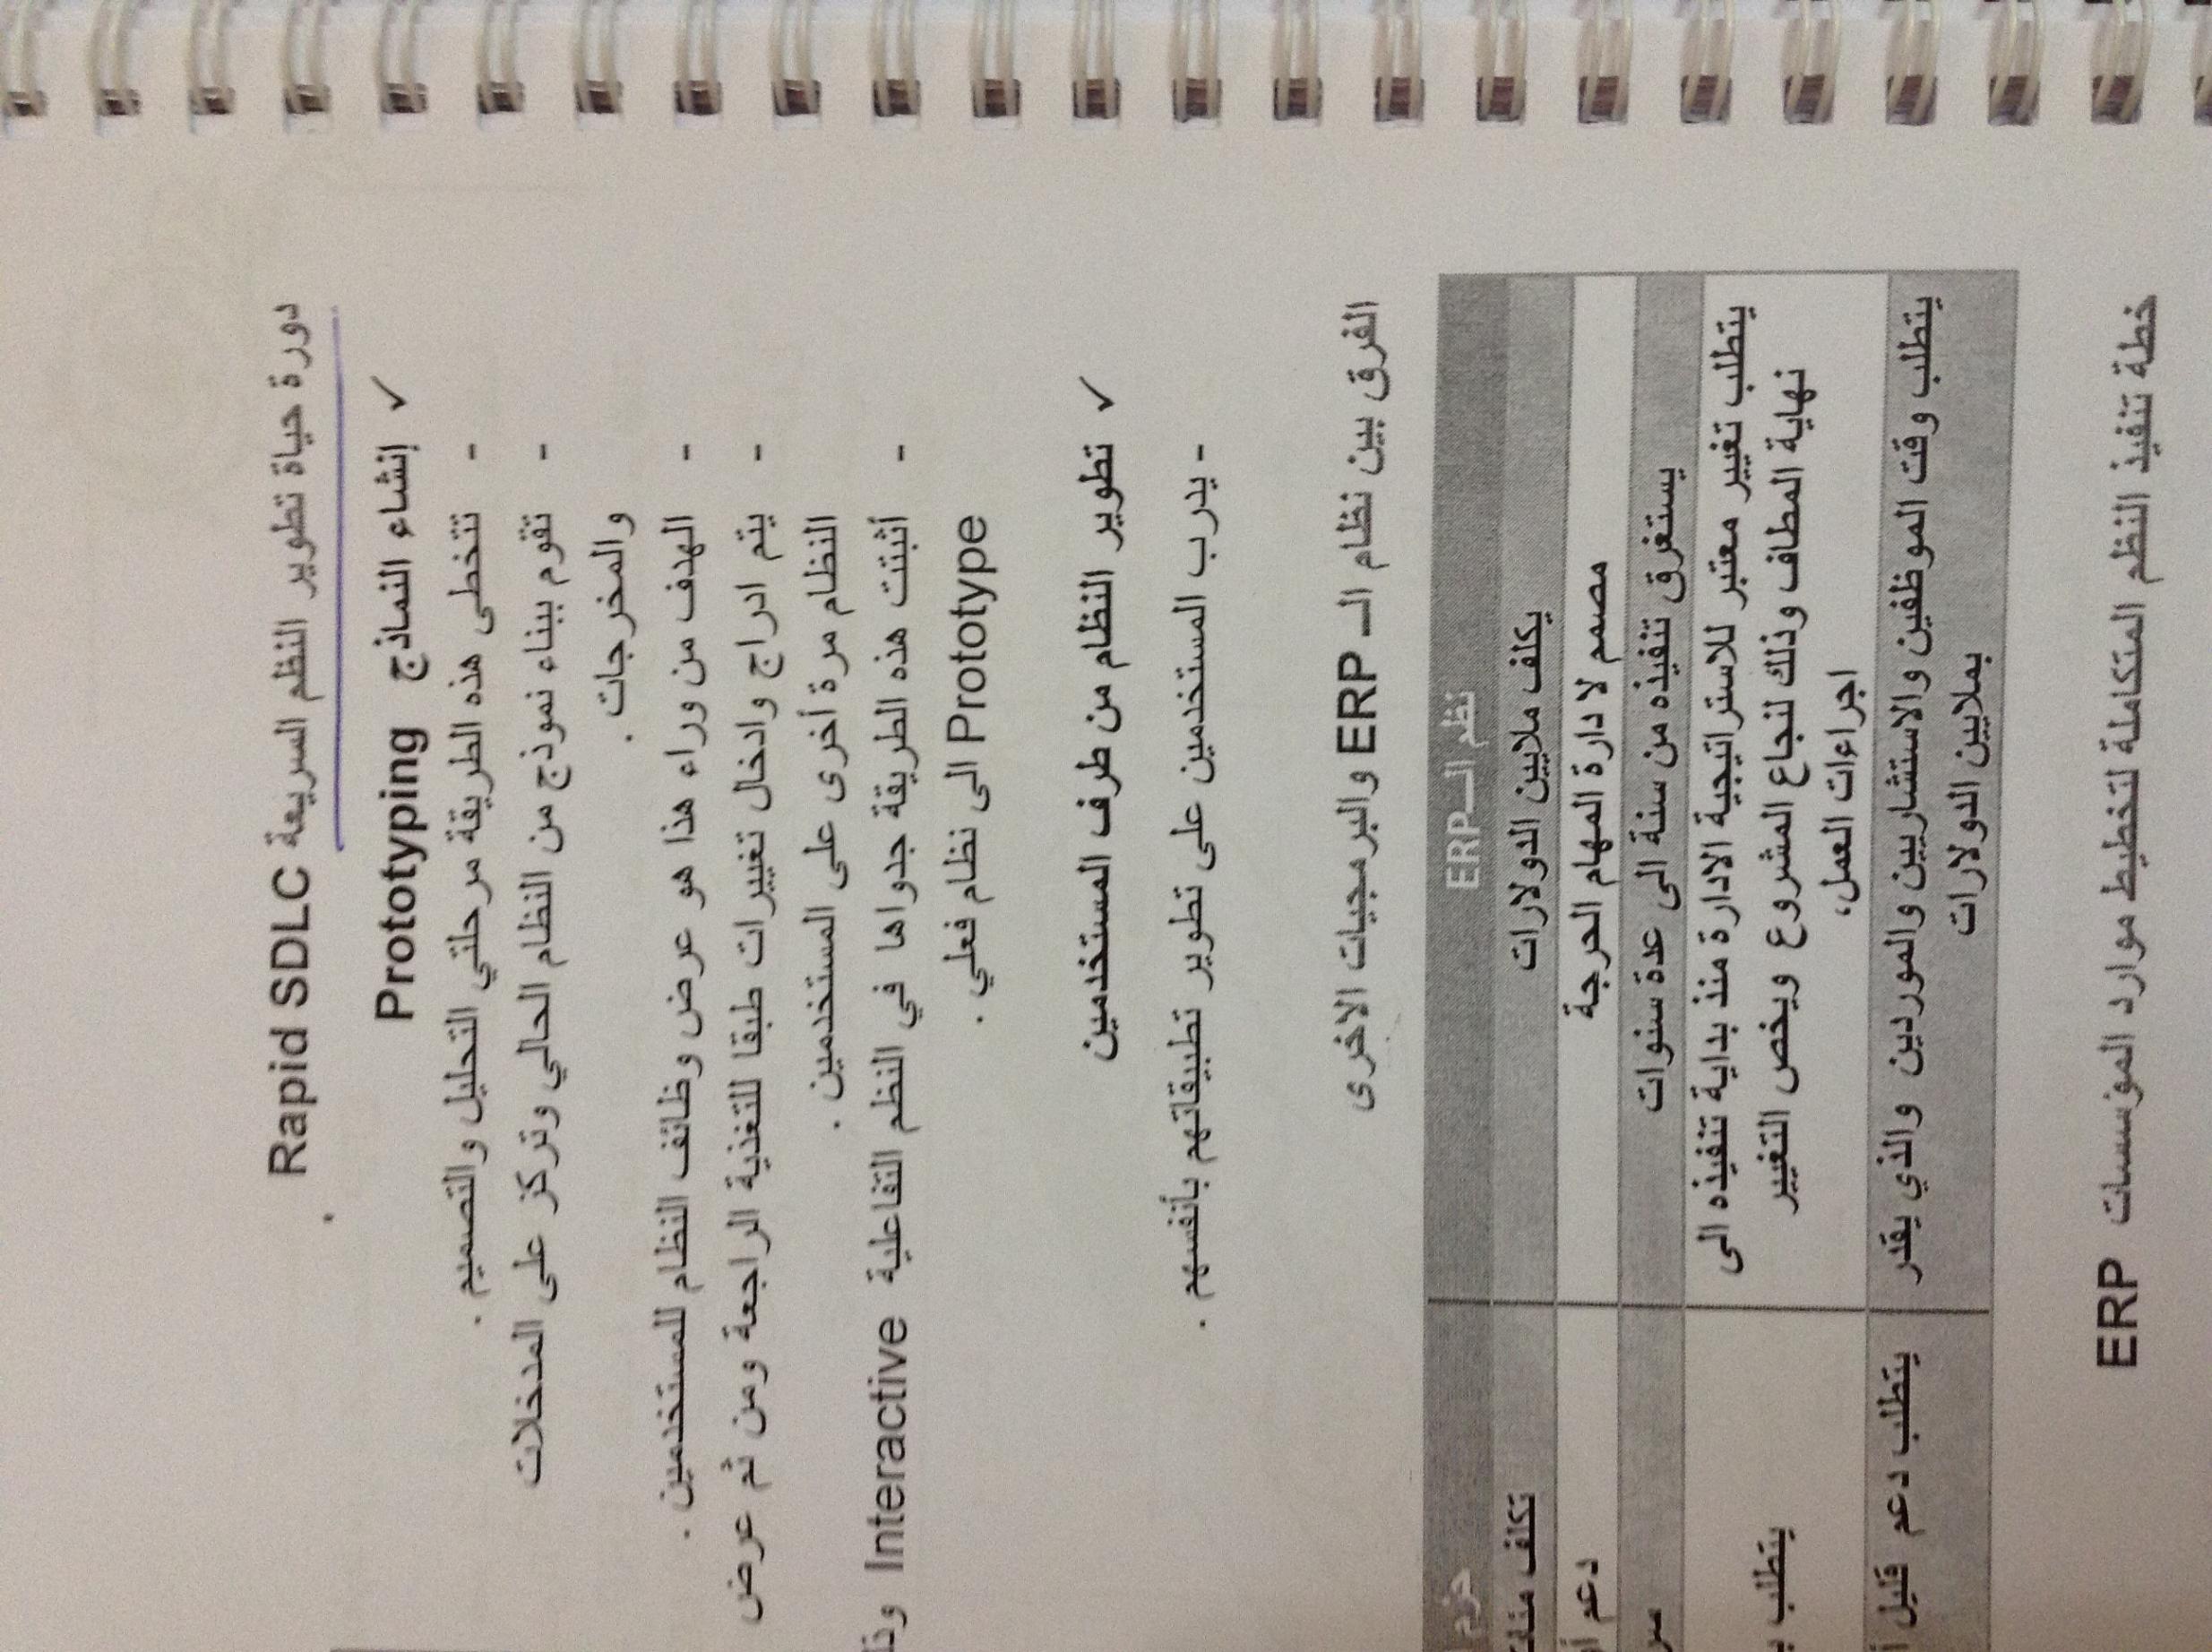 دورة حياة تطوير النظم السريعة Rapid SDLC
✓ إنشاء النماذج Prototyping
- تتخطى هذه الطريقة مرحلتي التحليل والتصميم .
- تقوم ببناء نموذج من النظام الحالي وتركز على المدخلات
والمخرجات .
- الهدف من وراء هذا هو عرض وظائف النظام للمستخدمين .
- يتم ادراج وادخال تغييرات طبقا للتغذية الراجعة ومن ثم عرض
النظام مرة أخرى على المستخدمين .
- أثبتت هذه الطريقة جدواها في النظم التفاعلية Interactive
Prototype الى نظام فعلي .
✓ تطوير النظام من طرف المستخدمين
- يدرب المستخدمين على تطوير تطبيقاتهم بأنفسهم .
الفرق بين نظام الـ ERP والبرمجيات الاخرى
نظم الـERP
يكلف ملايين الدولارات
تكلف
مصمم لا دارة المهام الحرجة
دعم
يستغرق تنفيذه من سنة الى عدة سنوات
يتطلب تغيير معتبر للاستراتيجية الادارة منذ بداية تنفيذه الى
نهاية المطاف وذلك لنجاع المشروع ويخص التغيير
اجراءات العمل،
يتطلب
يتطلب وقت الموظفين والاستشاريين والموردين والذي يقدر
بملايين الدولارات
يتطلب دعم قليل
خطة تنفيذ النظم المتكاملة لتخطيط موارد المؤسسات ERP